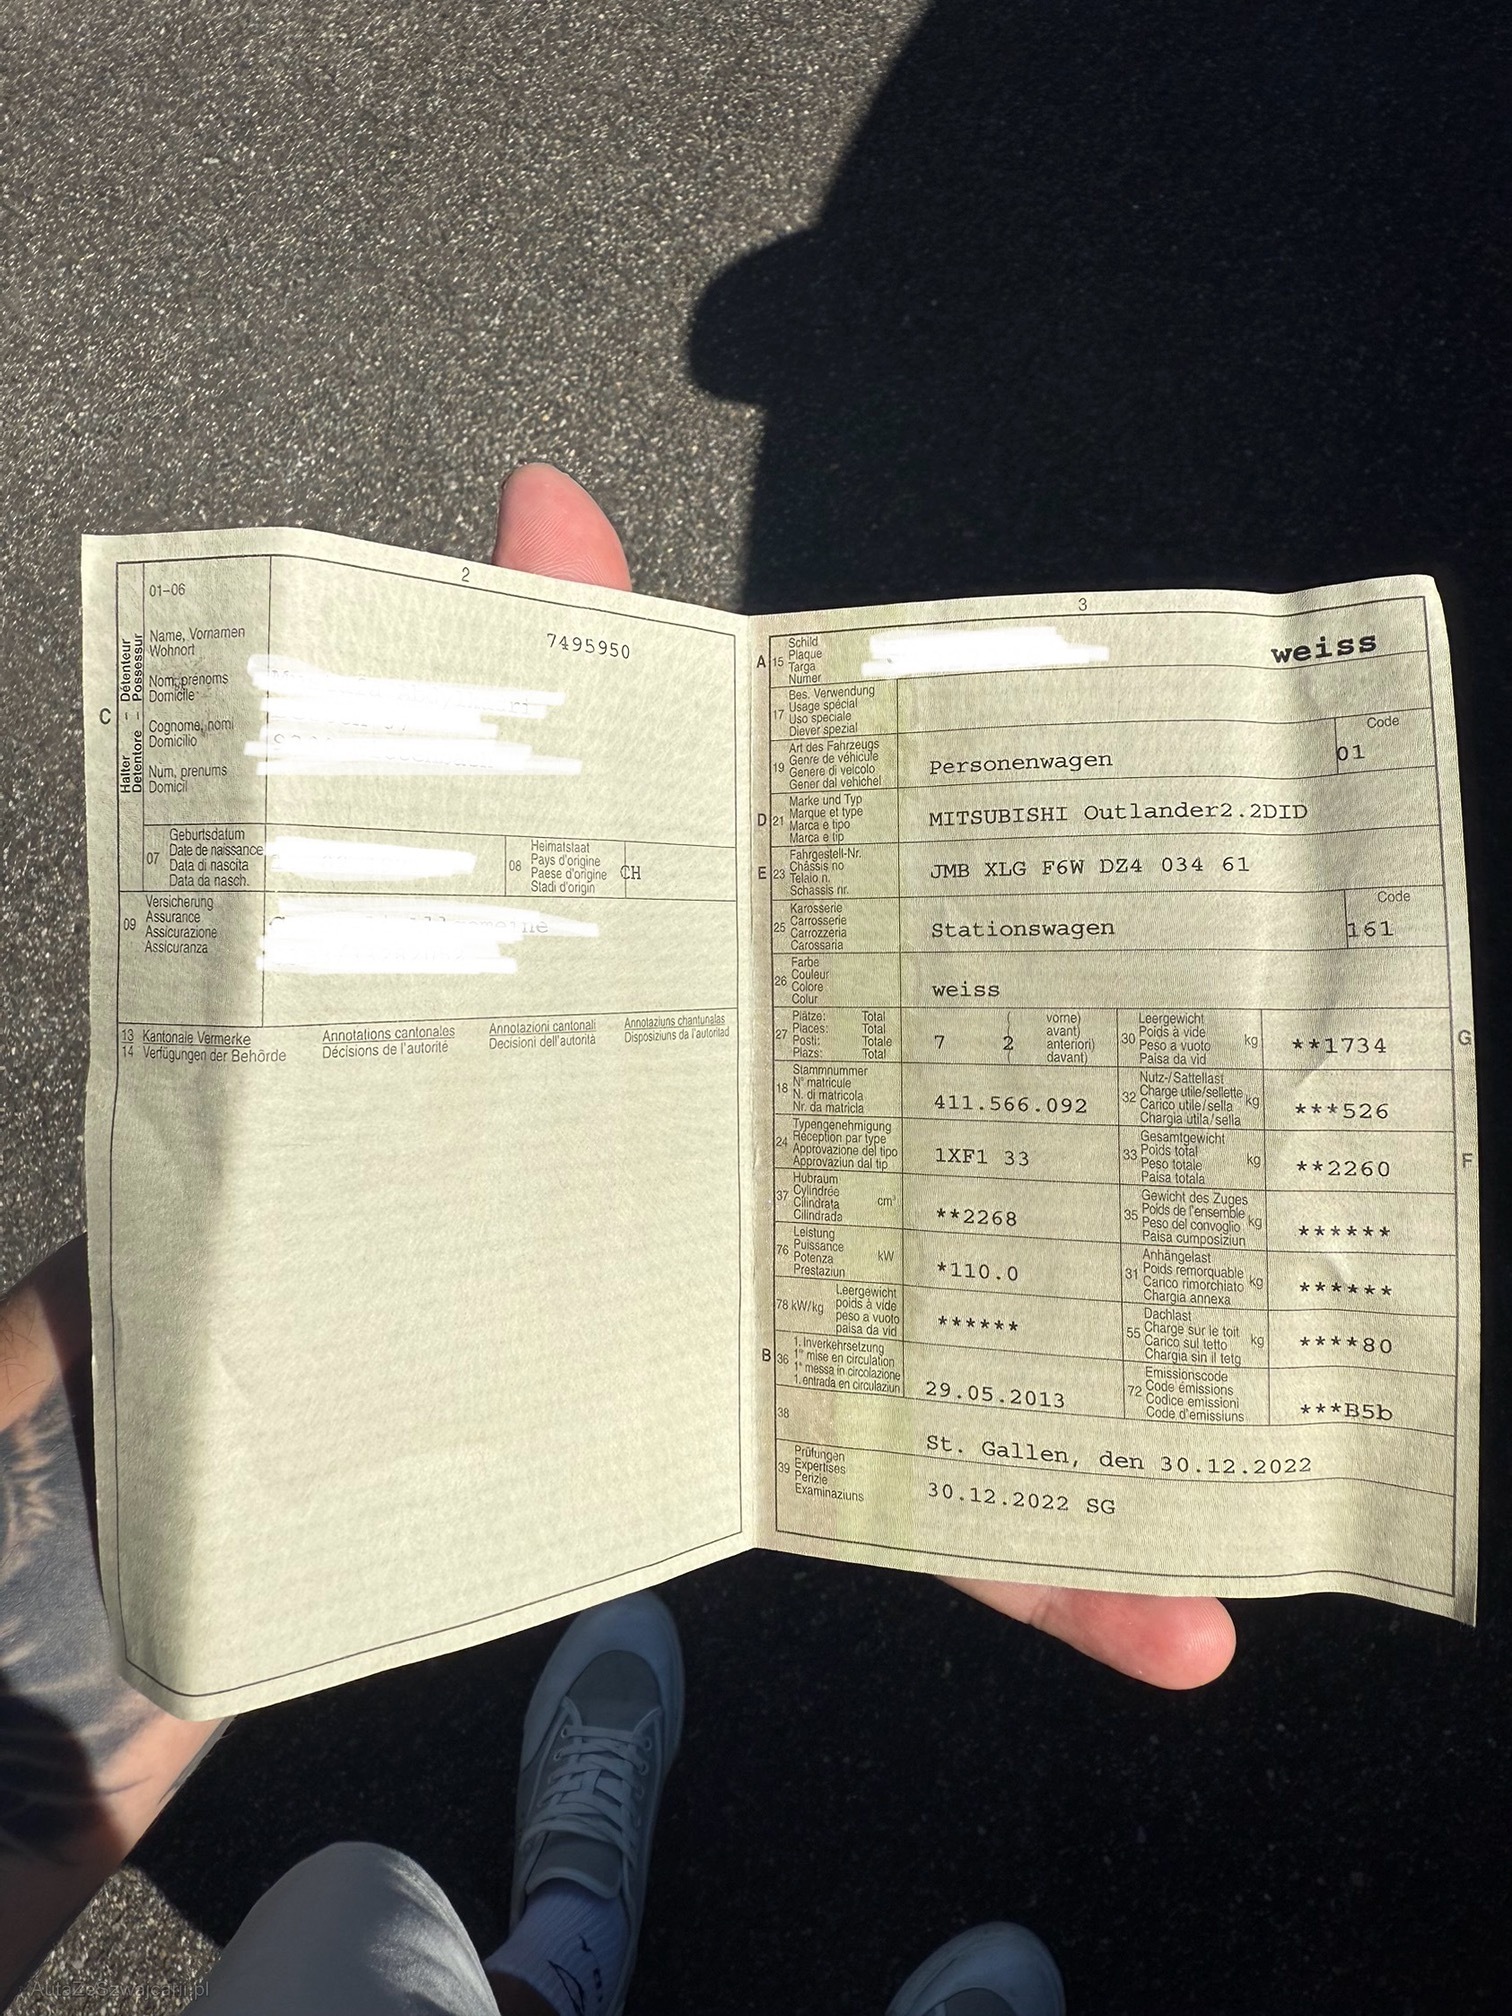 2
01-06
7495950
C
Halter - Détenteur
Detentore - Possessur
Name, Vornamen
Wohnort
Nom, prénoms
Domicile
Cognome, nomi
Domicilio
Num, prenums
Domicil
07
Geburtsdatum
Date de naissance
Data di nascita
Data da nasch.
08
Heimatstaat
Pays d'origine
Paese d'origine
Stadi d'origin
CH
09
Versicherung
Assurance
Assicurazione
Assicuranza
13 Kantonale Vermerke Annotations cantonales Annotazioni cantonali Annotaziuns chantunalas
14 Verfügungen der Behörde Décisions de l'autorité Decisioni dell'autorità Disposiziuns da l'autoritad
3
A 15
Schild
Plaque
Targa
Numer
weiss
17
Bes. Verwendung
Usage spécial
Uso speciale
Diever spezial
19
Art des Fahrzeugs
Genre de véhicule
Genere di veicolo
Gener dal vehichel
Personenwagen
Code
01
D 21
Marke und Typ
Marque et type
Marca e tipo
Marca e tip
MITSUBISHI Outlander2.2DID
E 23
Fahrgestell-Nr.
Châssis no
Telaio n.
Schassis nr.
JMB XLG F6W DZ4 034 61
25
Karosserie
Carrosserie
Carrozzeria
Carossaria
Stationswagen
Code
161
26
Farbe
Couleur
Colore
Colur
weiss
27
Plätze: Total ( vorne)
Places: Total ( avant)
Posti: Totale ( anteriori)
Plazs: Total ( davant)
7 2
30
Leergewicht
Poids à vide
Peso a vuoto
Paisa da vid
kg
**1734
G
18
Stammnummer
N° matricule
N. di matricola
Nr. da matricla
411.566.092
32
Nutz-/Sattellast
Charge utile/sellette
Carico utile/sella
Chargia utila/sella
kg
***526
24
Typengenehmigung
Réception par type
Approvazione del tipo
Approvaziun dal tip
1XF1 33
33
Gesamtgewicht
Poids total
Peso totale
Paisa totala
kg
**2260
F
37
Hubraum
Cylindrée
Cilindrata
Cilindrada
cm³
**2268
35
Gewicht des Zuges
Poids de l'ensemble
Peso del convoglio
Paisa cumposiziun
kg
******
76
Leistung
Puissance
Potenza
Prestaziun
kW
*110.0
31
Anhängelast
Poids remorquable
Carico rimorchiato
Chargia annexa
kg
******
78 kW/kg
Leergewicht
poids à vide
peso a vuoto
paisa da vid
******
55
Dachlast
Charge sur le toit
Carico sul tetto
Chargia sin il tetg
kg
****80
B 36
1. Inverkehrsetzung
1re mise en circulation
1a messa in circolazione
1. entrada en circulaziun
29.05.2013
72
Emissionscode
Code émissions
Codice emissioni
Code d'emissiuns
***B5b
38
St. Gallen, den 30.12.2022
39
Prüfungen
Expertises
Perizie
Examinaziuns
30.12.2022 SG
AutaZeSzwajcarii.pl